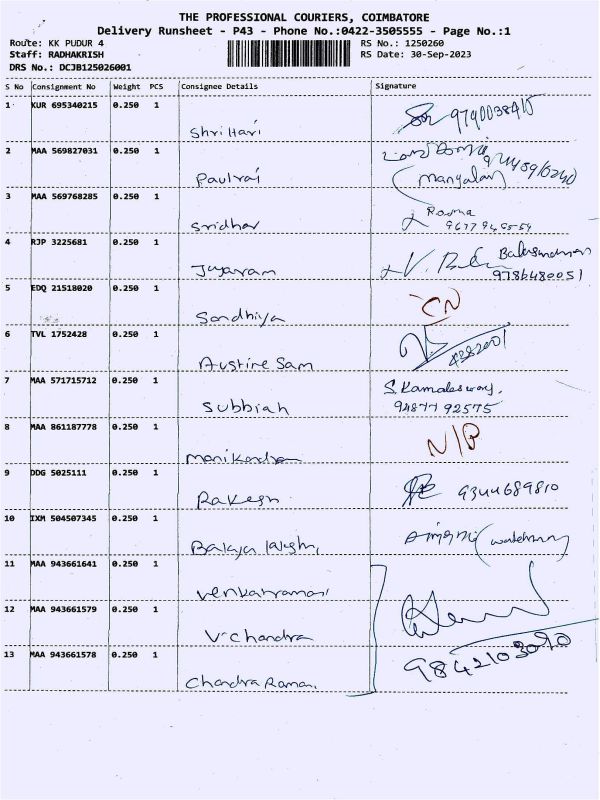 THE PROFESSIONAL COURIERS, COIMBATORE
Delivery Runsheet - P43 - Phone No.:0422-3505555 - Page No.:1
Route: KK PUDUR 4
RS No.: 1250260
Staff: RADHAKRISH
RS Date: 30-Sep-2023
DRS No.: DCJB125026001
S No Consignment No Weight PCS Consignee Details Signature
1 KUR 695340215 0.250 1
Shri Hari
2 MAA 569827031 0.250 1
Paulraj
3 MAA 569768285 0.250 1
Sridhar
4 RJP 3225681 0.250 1
Jayaram
9786480051
5 EDQ 21518020 0.250 1
Sandhiya
CN
6 TVL 1752428 0.250 1
Austire Sam
7 MAA 571715712 0.250 1
Subbiah
94877 92575
8 MAA 861187778 0.250 1
N/P
9 DDG 5025111 0.250 1
Rakesh
9344689810
10 IXM 504507345 0.250 1
11 MAA 943661641 0.250 1
12 MAA 943661579 0.250 1
V. Chandra
13 MAA 943661578 0.250 1
Chandra Raman.
9842103090